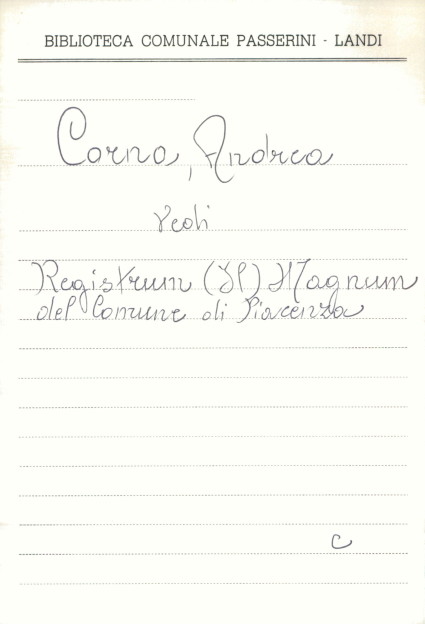 BIBLIOTECA COMUNALE PASSERINI - LANDI
Corna, Andrea
Vedi
Registrum (Il) Magnum
del Comune di Piacenza
C